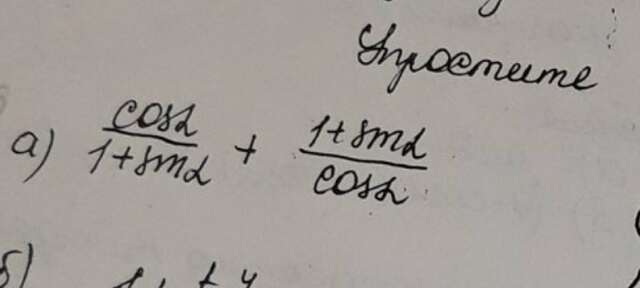 Упростите
а) cosα/(1+sinα) + (1+sinα)/cosα
б)